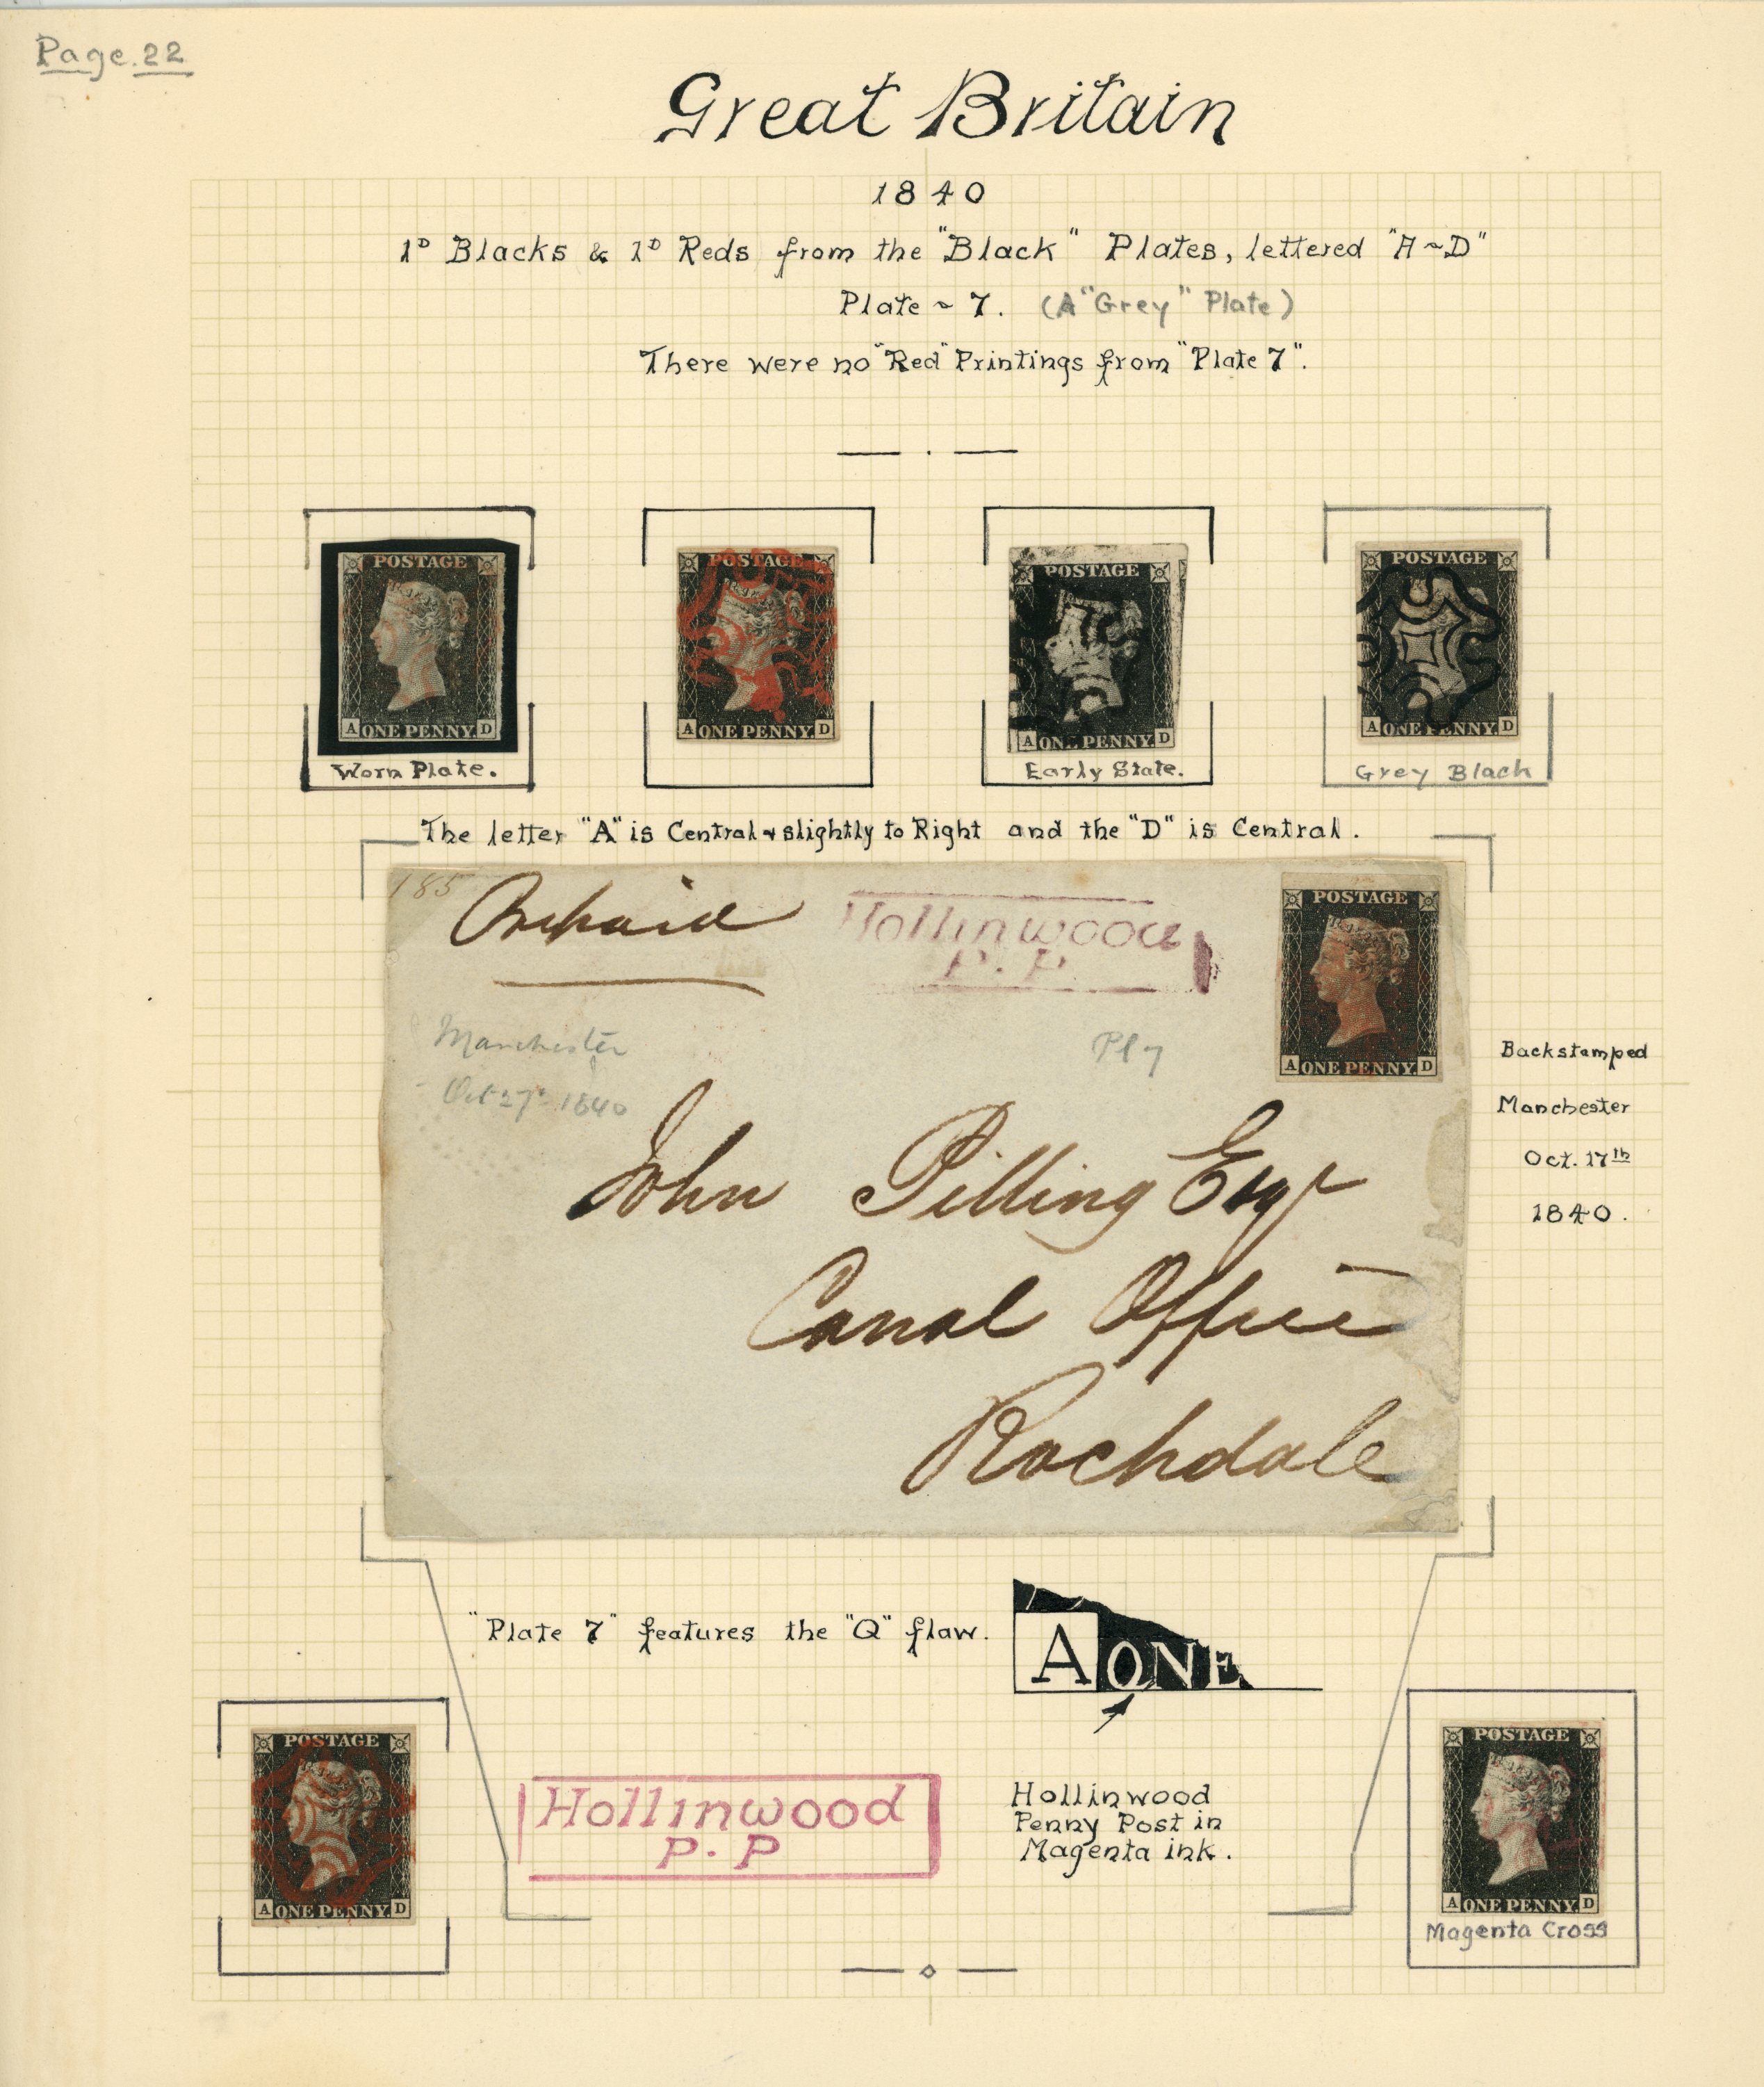 Page.22
Great Britain
1840
1ᴰ Blacks & 1ᴰ Reds from the "Black" Plates, lettered "A~D"
Plate ~ 7. (A "Grey" Plate)
There were no "Red" Printings from "Plate 7".
POSTAGE
A ONE PENNY D
Worn Plate.
POSTAGE
A ONE PENNY D
POSTAGE
A ONE PENNY D
Early State.
POSTAGE
A ONE PENNY D
Grey Black
The letter "A" is Central & slightly to Right and the "D" is Central.
185
Hollinwood
P. P
POSTAGE
A ONE PENNY D
Manchester
Oct 27th 1840
Pl 7
John Pilling Esqr
Canal Office
Rochdale
Backstamped
Manchester
Oct. 17th
1840.
"Plate 7" features the "Q" flaw.
A ONE
POSTAGE
A ONE PENNY D
Hollinwood
P. P
Hollinwood
Penny Post in
Magenta ink.
POSTAGE
A ONE PENNY D
Magenta Cross